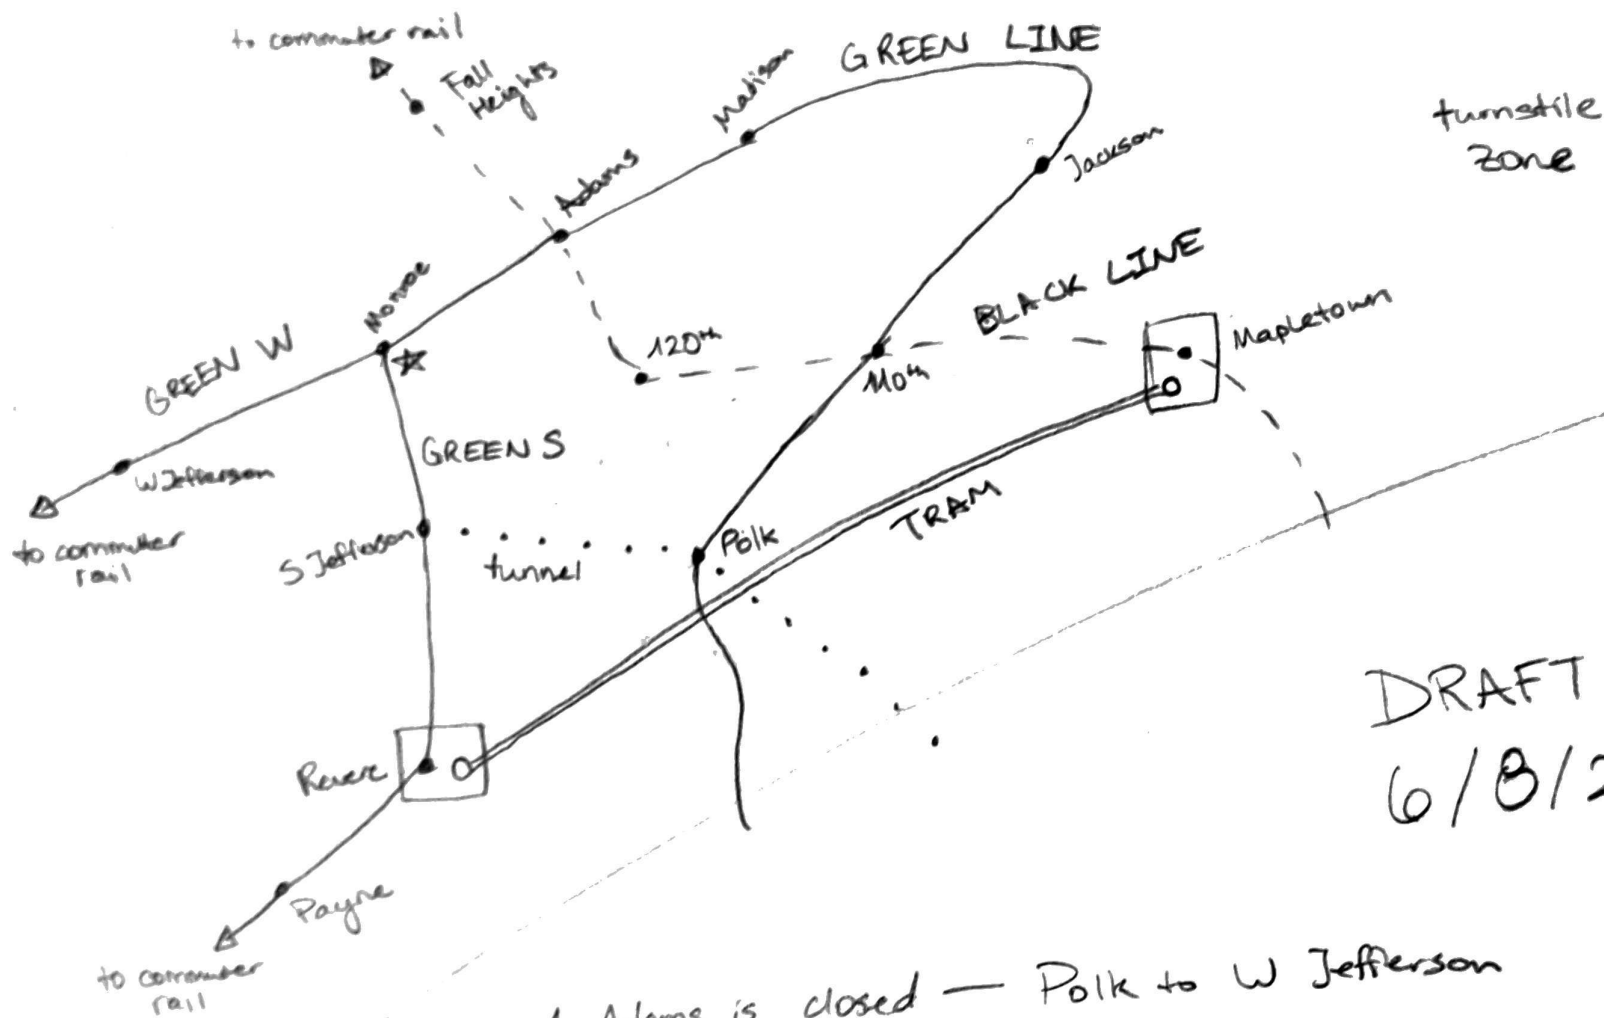 to commuter rail
Fall
Heights
Madison
GREEN LINE
turnstile
zone
Adams
Jackson
Monroe
GREEN W
120th
110th
BLACK LINE
Mapletown
W Jefferson
to commuter
rail
GREEN S
S Jefferson
tunnel
Polk
TRAM
Revere
DRAFT
6/8/2
Payne
to commuter
rail
Adams is closed — Polk to W Jefferson